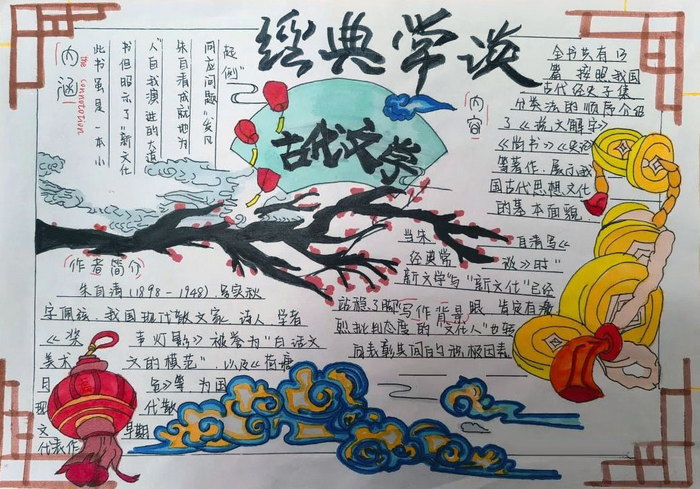 經典学谈
古代文学
内涵
the connotation
起例"
问应问题"发凡
朱自清成就他为
人"自我演进的大道
书但昭示了"新文化
此书虽是一本小
内容
全书共有13
篇,按照我国
古代经史子集
分类法的顺序介绍
了《说文解字》
《尚书》《史记》
等著作,展示我
国古代思想文化
的基本面貌
作者简介
朱自清(1898-1948),吴秋
字佩弦,我国现代散文家、诗人、学者
《桨 声灯影》被誉为"白话文
美术 文的模范",以及《荷塘
月 色》等为国
现 代散
文 早期
代表作
写作背景
当朱 自清写《
经典常 谈》时"
新文学"与"新文化"已经
站稳了脚 跟,肯定有激
烈批判态度的"文化人"也转
向表彰其间的积极因素